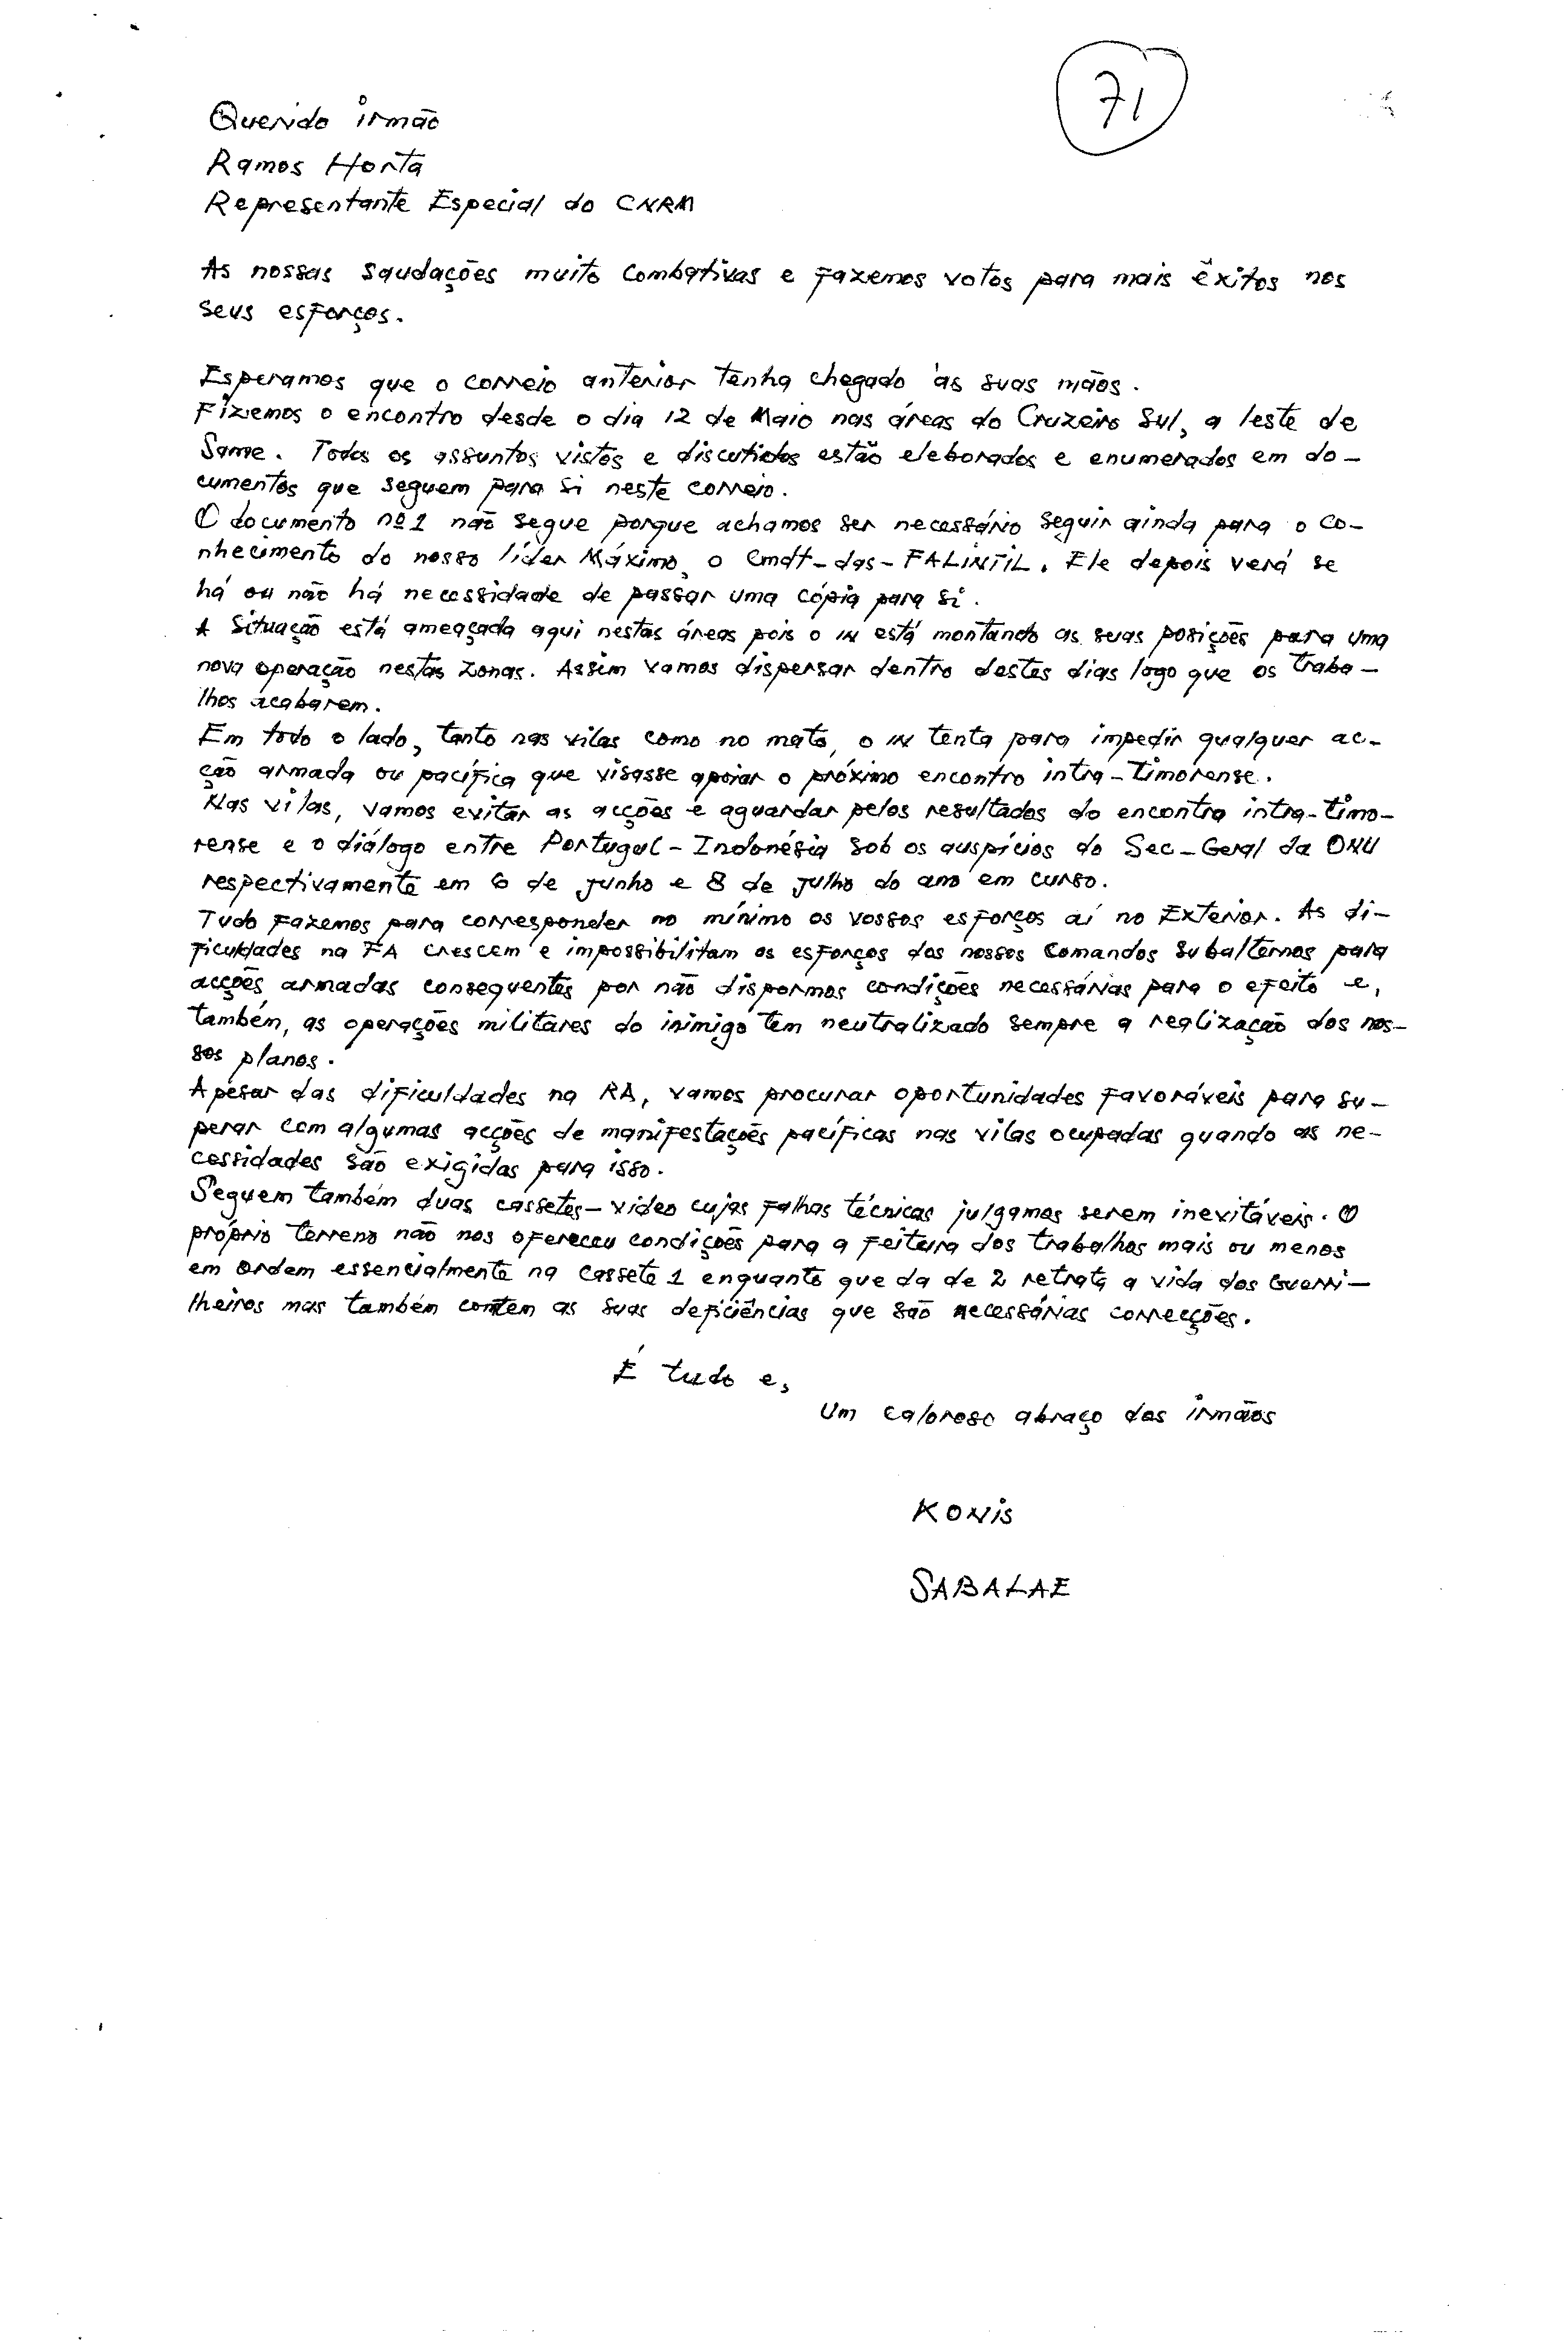 71
Querido irmão
Ramos Horta
Representante Especial do CNRM
As nossas saudações muito combativas e fazemos votos para mais êxitos nos
seus esforços.
Esperamos que o correio anterior tenha chegado às suas mãos.
Fizemos o encontro desde o dia 12 de Maio nas áreas do Cruzeiro Sul, a leste de
Same. Todos os assuntos vistos e discutidos estão eleborados e enumerados em do-
cumentos que seguem para si neste correio.
O documento nº 1 não segue porque achamos ser necessário seguir ainda para o co-
nhecimento do nosso líder Máximo, o Cmdt-das-FALINTIL. Ele depois verá se
há ou não há necessidade de passar uma cópia para si.
A situação está ameaçada aqui nestas áreas pois o IN está montando as suas posições para uma
nova operação nestas zonas. Assim vamos dispersar dentro destes dias logo que os traba-
lhos acabarem.
Em todo o lado, tanto nas vilas como no mato, o IN tenta para impedir qualquer ac-
ção armada ou pacífica que visasse apoiar o próximo encontro intra-timorense.
Nas vilas, vamos evitar as acções e aguardar pelos resultados do encontro intra-timo-
rense e o diálogo entre Portugal-Indonésia sob os auspícios do Sec-Geral da ONU
respectivamente em 6 de junho e 8 de julho do ano em curso.
Tudo fazemos para corresponder no mínimo os vossos esforços aí no Exterior. As di-
ficuldades na FA crescem e impossibilitam os esforços dos nossos Comandos Subalternos para
acções armadas consequentes por não dispormos condições necessárias para o efeito e,
também, as operações militares do inimigo tem neutralizado sempre a realização dos nos-
sos planos.
Apesar das dificuldades na RA, vamos procurar oportunidades favoráveis para su-
perar com algumas acções de manifestações pacíficas nas vilas ocupadas quando as ne-
cessidades são exigidas para isso.
Seguem também duas cassetes-video cujas falhas técnicas julgamos serem inevitáveis. O
próprio terreno não nos ofereceu condições para a feitura dos trabalhos mais ou menos
em ordem essencialmente na cassete 1 enquanto que da de 2 retrata a vida dos Guerri-
lheiros mas também contem as suas deficiências que são necessárias correcções.
É tudo e,
Um caloroso abraço dos irmãos
KONIS
SABALAE